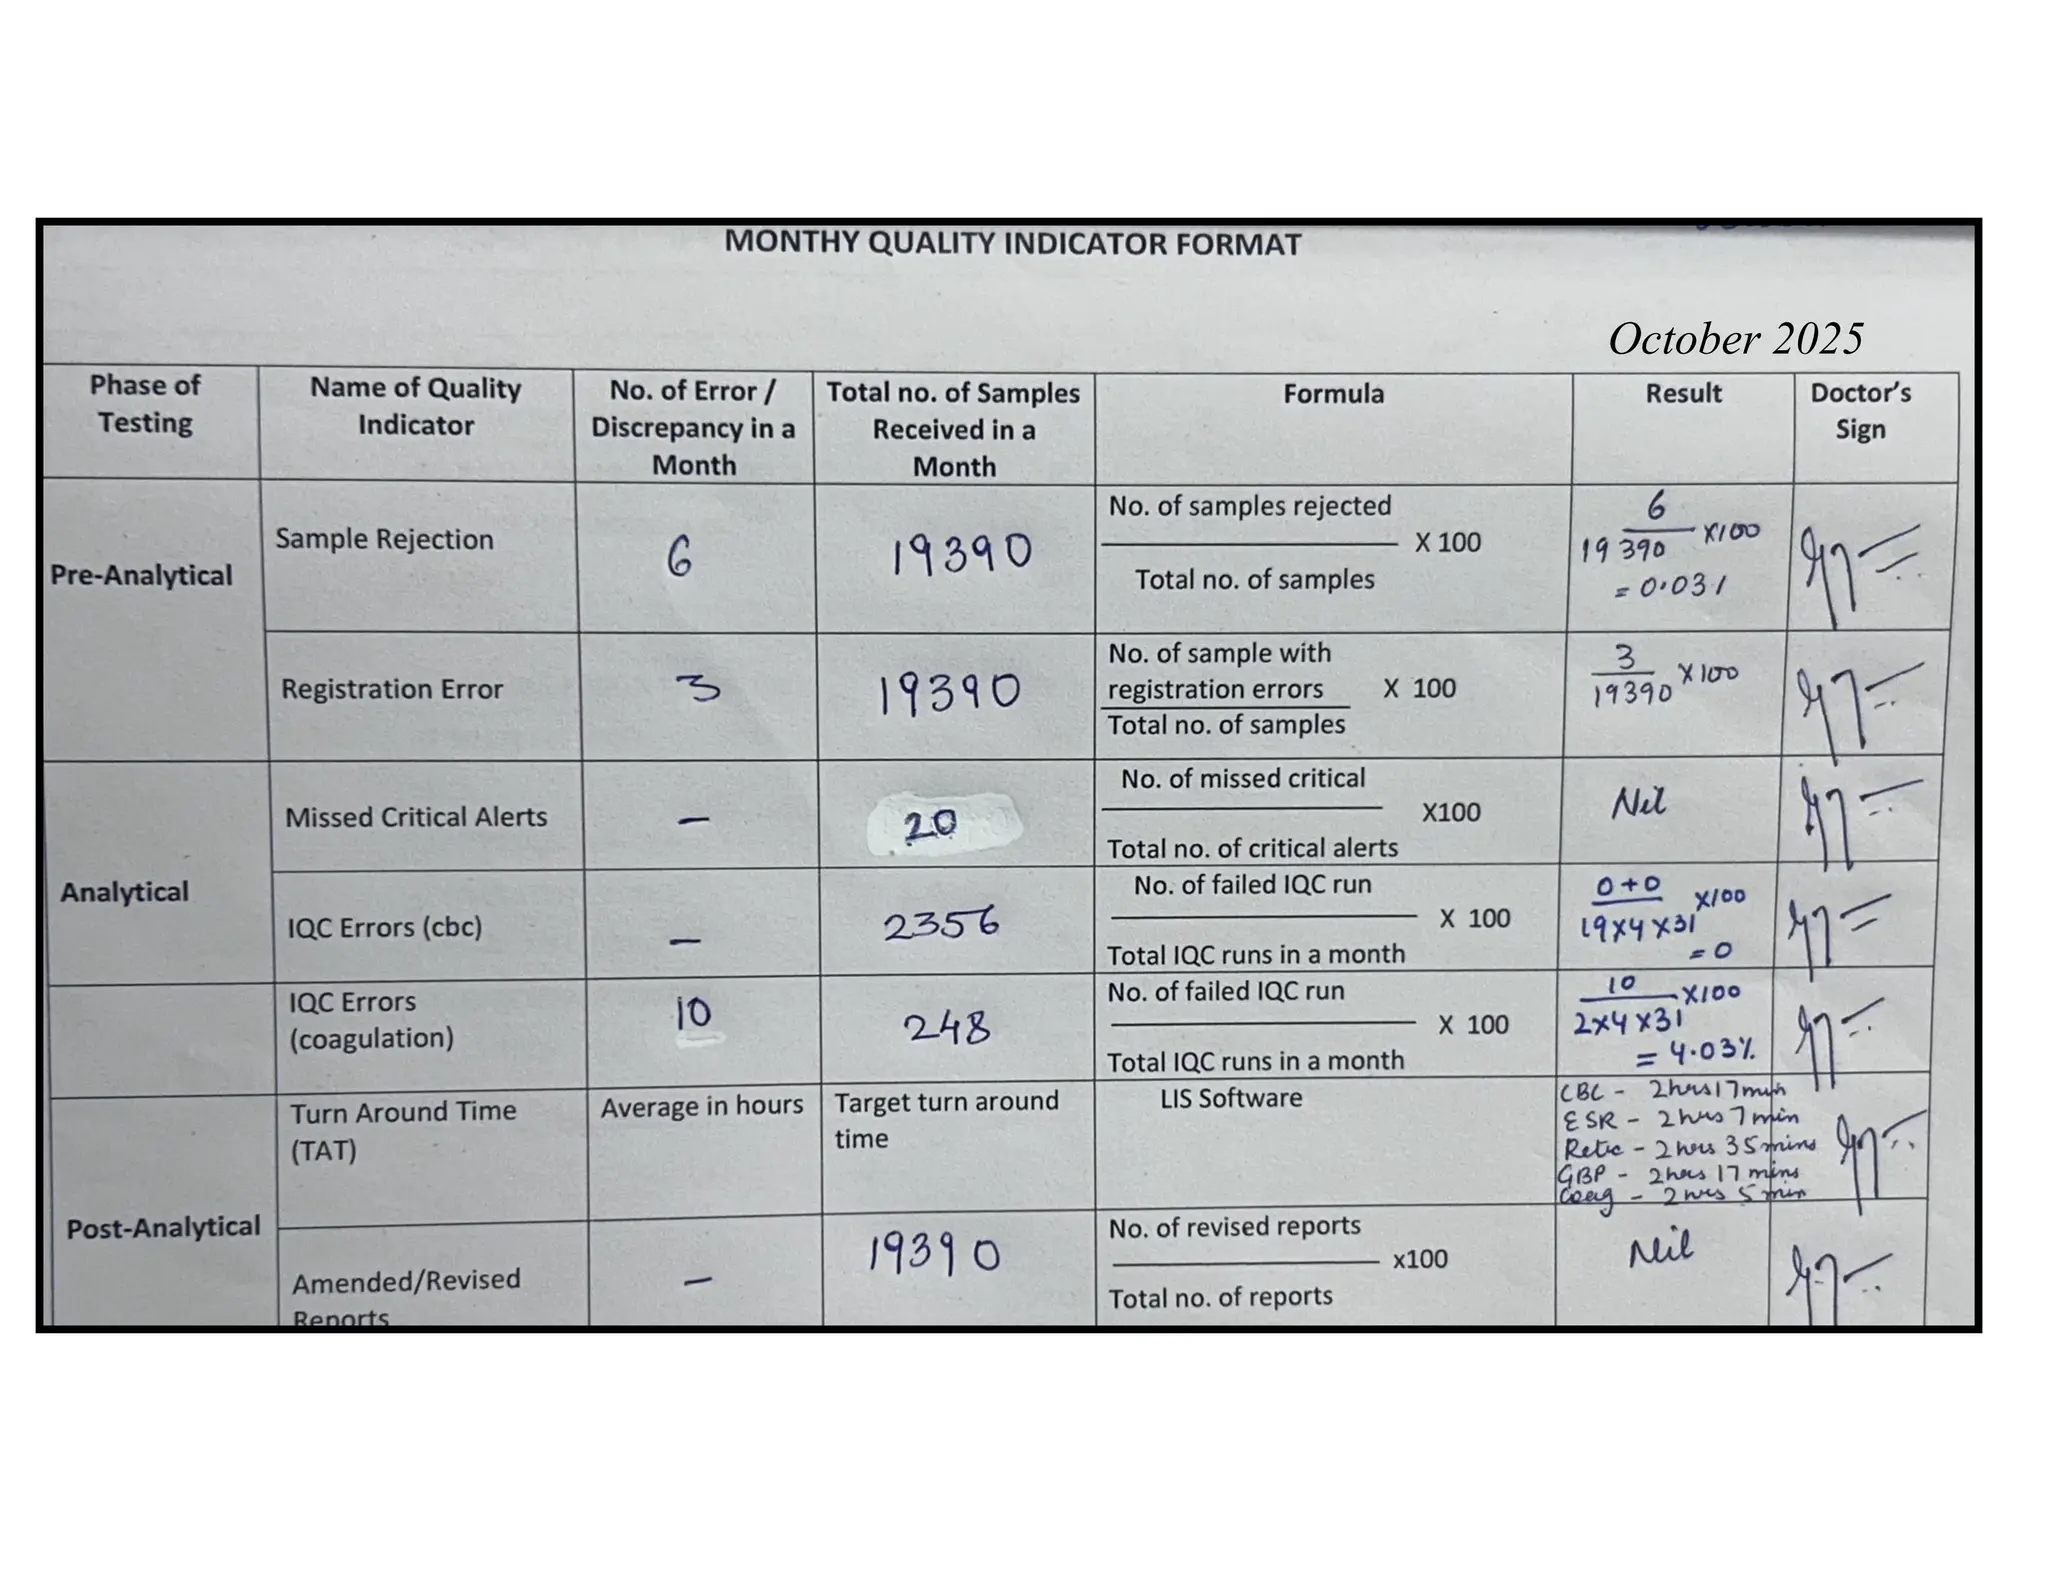 MONTHY QUALITY INDICATOR FORMAT
October 2025
Phase of Testing | Name of Quality Indicator | No. of Error / Discrepancy in a Month | Total no. of Samples Received in a Month | Formula | Result | Doctor's Sign
Pre-Analytical
Sample Rejection
6
19390
No. of samples rejected
X 100
Total no. of samples
6
19390 X100
= 0.031
Registration Error
3
19390
No. of sample with
registration errors X 100
Total no. of samples
3
19390 X100
Analytical
Missed Critical Alerts
–
20
No. of missed critical
X100
Total no. of critical alerts
Nil
IQC Errors (cbc)
–
2356
No. of failed IQC run
X 100
Total IQC runs in a month
0+0 X100
19X4X31
= 0
IQC Errors
(coagulation)
10
248
No. of failed IQC run
X 100
Total IQC runs in a month
10 X100
2X4X31
= 4.03%
Post-Analytical
Turn Around Time
(TAT)
Average in hours
Target turn around
time
LIS Software
CBC - 2hrs17min
ESR - 2hrs 7min
Retic - 2hrs 35mins
GBP - 2hrs 17 mins
Coag - 2 hrs 5 min
Amended/Revised
Reports
–
19390
No. of revised reports
x100
Total no. of reports
Nil